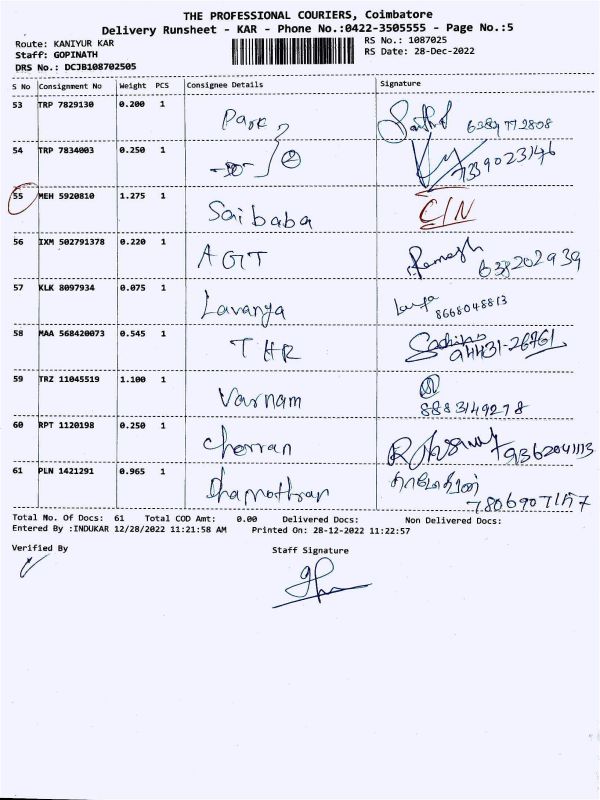 THE PROFESSIONAL COURIERS, Coimbatore
Delivery Runsheet - KAR - Phone No.:0422-3505555 - Page No.:5
Route: KANIYUR KAR
Staff: GOPINATH
DRS No.: DCJB108702505
RS No.: 1087025
RS Date: 28-Dec-2022
S No Consignment No Weight PCS Consignee Details Signature
53 TRP 7829130 0.200 1 Park 6384772808
54 TRP 7834003 0.250 1 -do- 2 7339023146
55 MEH 5920810 1.275 1 Saibaba C/N
56 IXM 502791378 0.220 1 AGT Ramesh 638202939
57 KLK 8097934 0.075 1 Lavanya 8668048813
58 MAA 568420073 0.545 1 THR 94431-26761
59 TRZ 11045519 1.100 1 Varnam 8883149278
60 RPT 1120198 0.250 1 Cherran 9362041113
61 PLN 1421291 0.965 1 Dhamothran தாமோதரன்
Total No. Of Docs: 61 Total COD Amt: 0.00 Delivered Docs: Non Delivered Docs:
Entered By :INDUKAR 12/28/2022 11:21:58 AM Printed On: 28-12-2022 11:22:57
Verified By Staff Signature